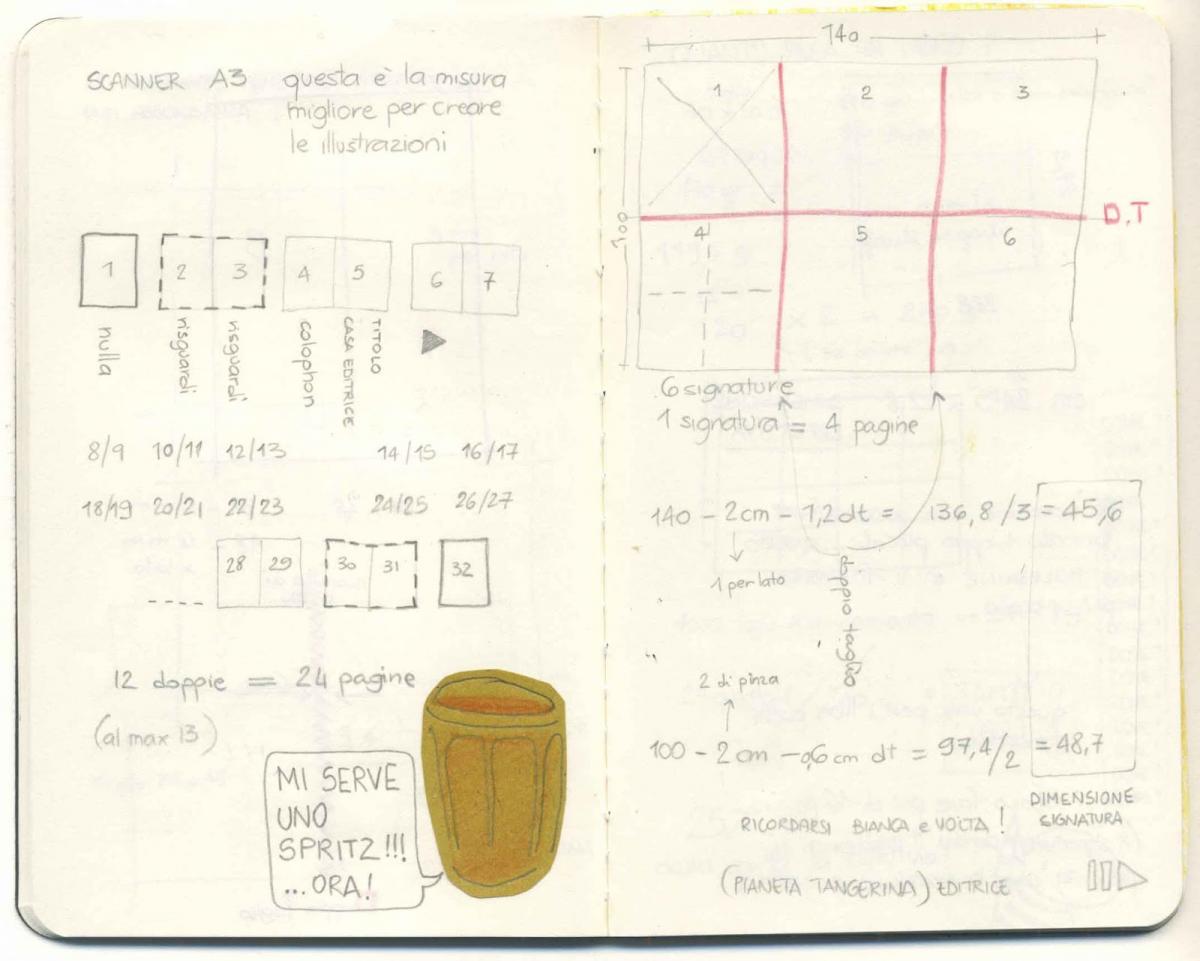 SCANNER A3 questa è la misura
migliore per creare
le illustrazioni
1 2 3 4 5 6 7
nulla
risguardi
risguardi
colophon
CASA EDITRICE
TITOLO
8/9 10/11 12/13 14/15 16/17
18/19 20/21 22/23 24/25 26/27
28 29 30 31 32
12 doppie = 24 pagine
(al max 13)
MI SERVE
UNO
SPRITZ!!!
...ORA!
140
1 2 3
100
D.T
4 5 6
6 signature
1 signatura = 4 pagine
140 - 2cm - 1,2 dt = 136,8/3 = 45,6
1 per lato
doppio taglio
2 di pinza
100 - 2 cm - 0,6 cm dt = 97,4/2 = 48,7
DIMENSIONE
SIGNATURA
RICORDARSI BIANCA e VOLTA!
(PIANETA TANGERINA) EDITRICE